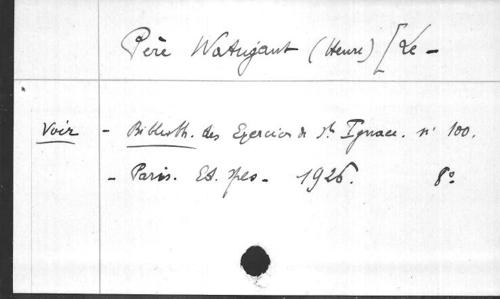 Père Watrigant (Henri) [Le -
Voir - Biblioth. des Exercices de St Ignace. n° 100.
- Paris. Et. 1926. 8°